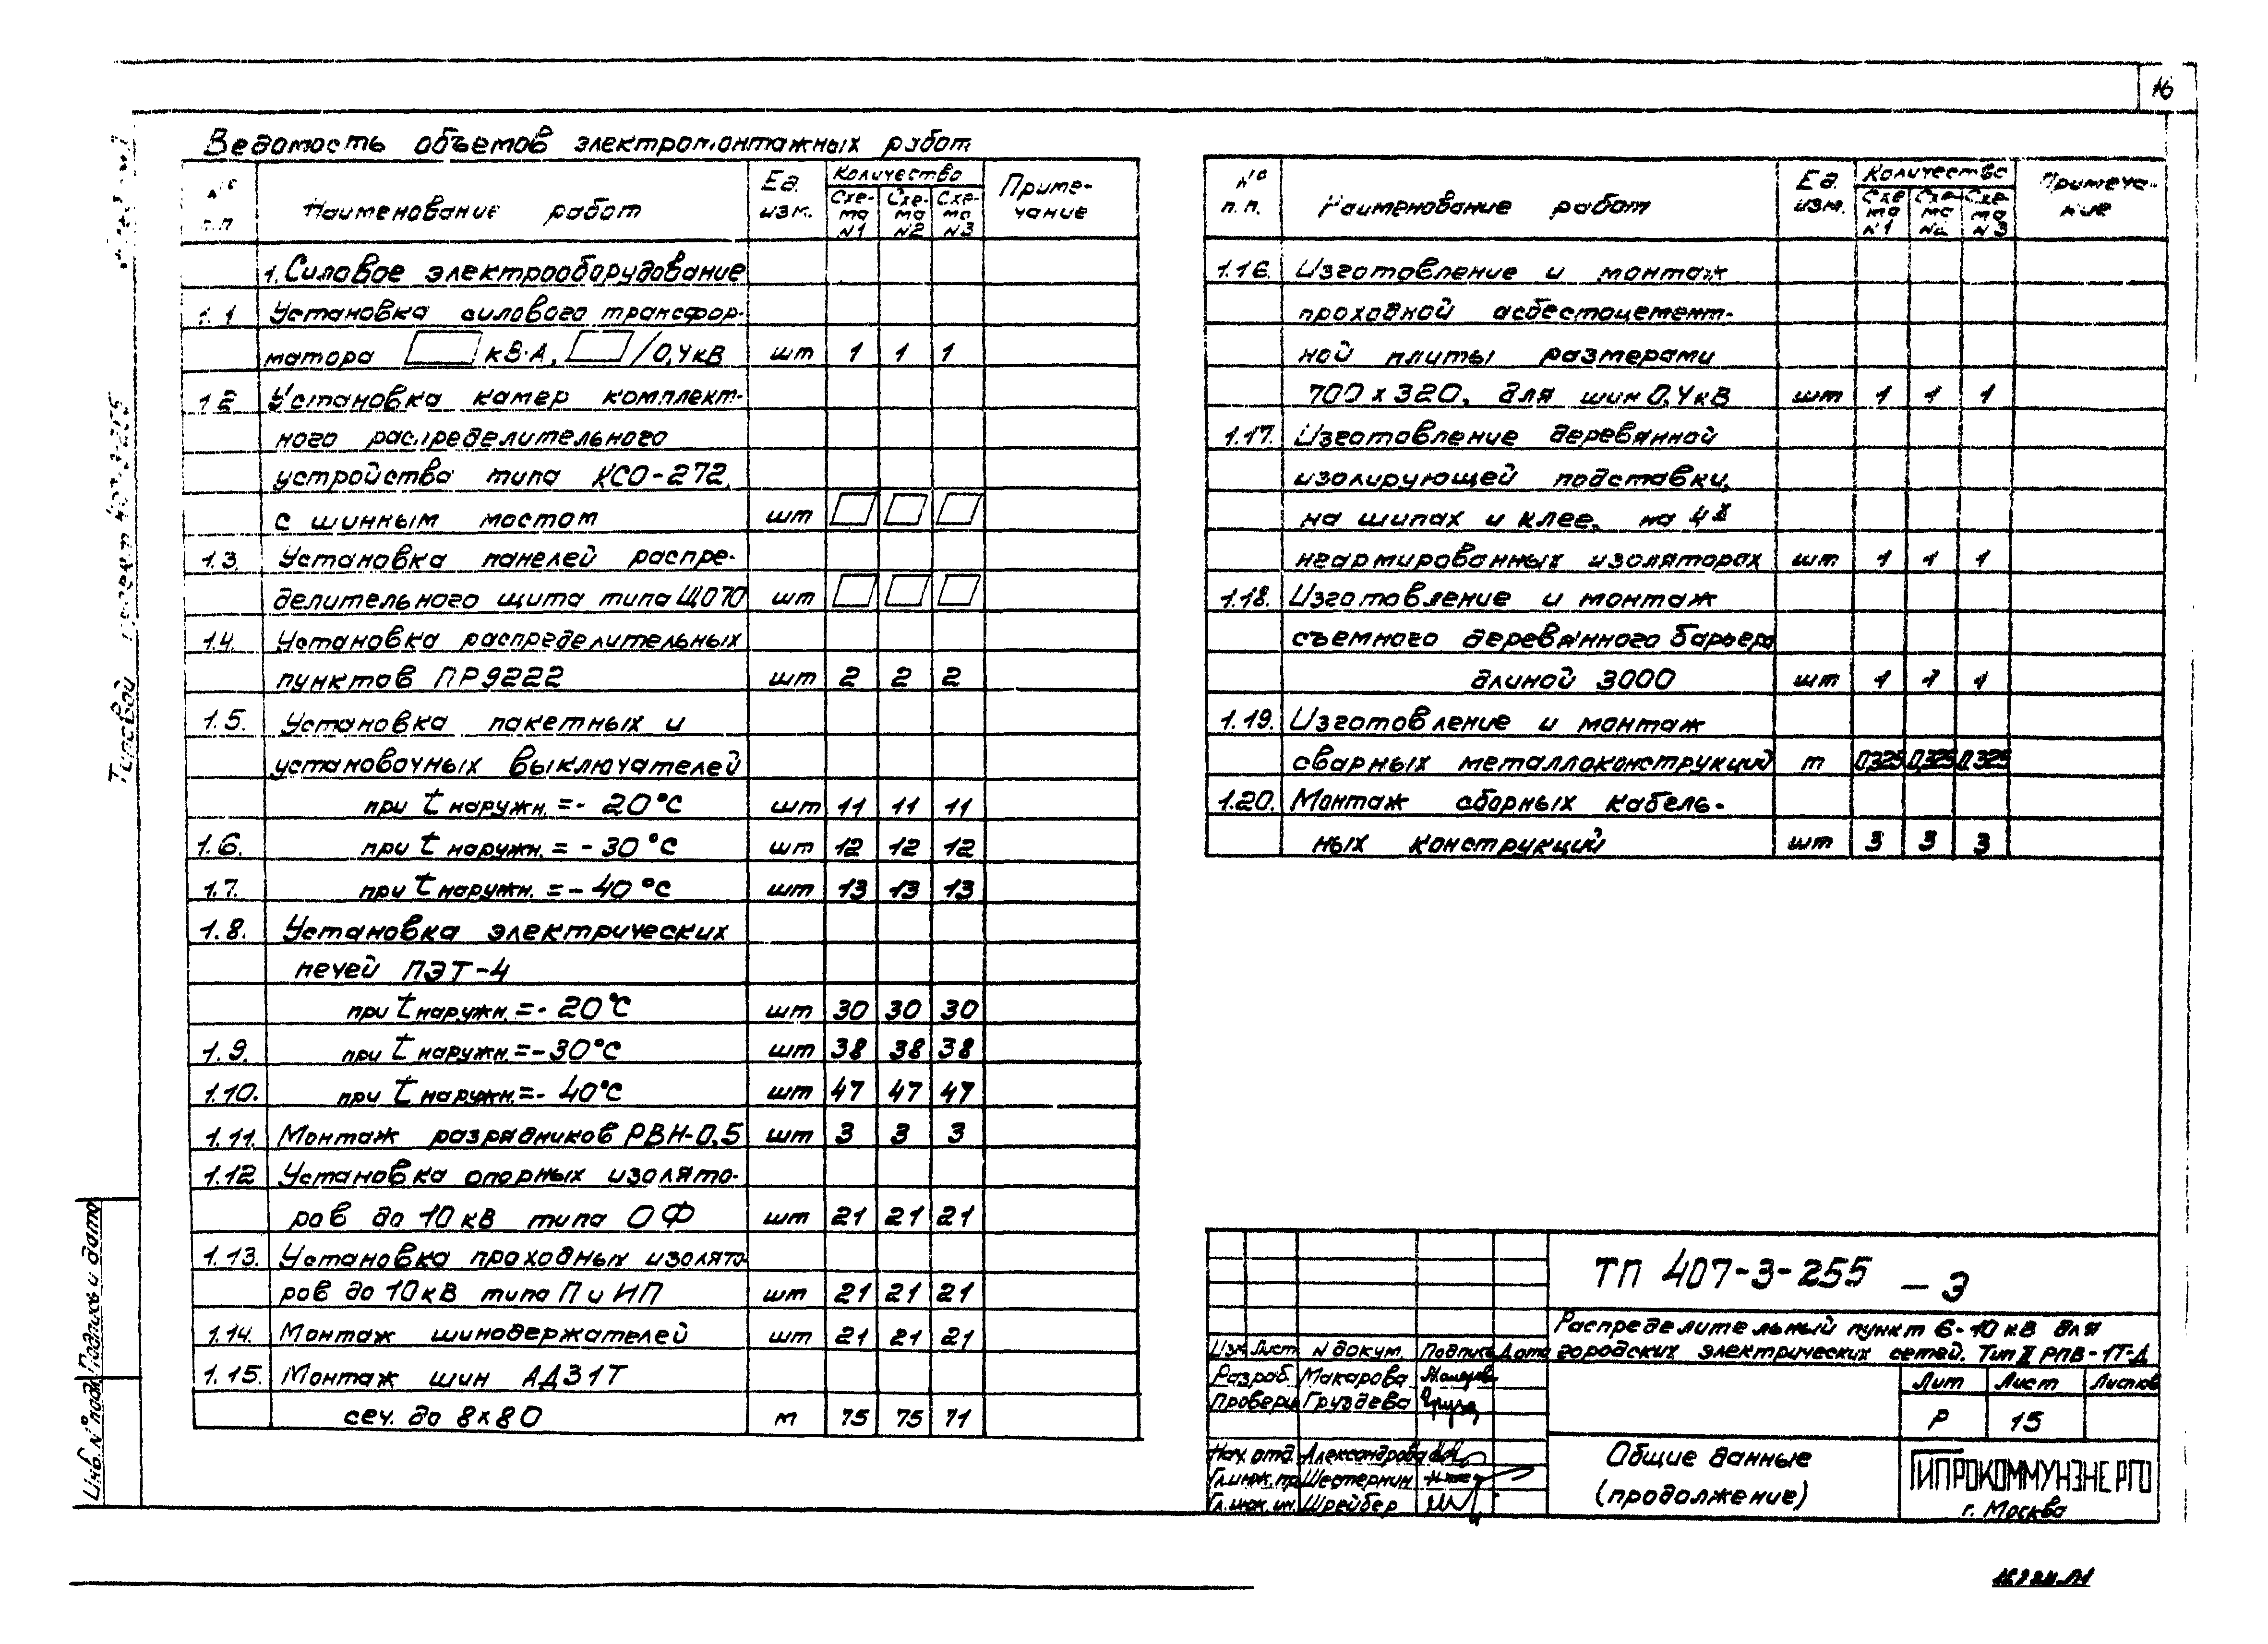 16
Ведомость объемов электромонтажных работ
№ п.п
Наименование работ
Ед. изм.
Количество
Схе-ма N1
Схе-ма N2
Схе-ма N3
Приме-чание
1. Силовое электрооборудование
1.1 Установка силового трансфор-
матора кВ·А, /0,4кВ шт 1 1 1
1.2 Установка камер комплект-
ного распределительного
устройства типа КСО-272,
с шинным мостом шт
1.3. Установка панелей распре-
делительного щита типа ЩО70 шт
1.4. Установка распределительных
пунктов ПР9222 шт 2 2 2
1.5. Установка пакетных и
установочных выключателей
при t наружн. =- 20°С шт 11 11 11
1.6. при t наружн. = - 30°С шт 12 12 12
1.7. при t наружн. = - 40°С шт 13 13 13
1.8. Установка электрических
печей ПЭТ-4
при t наружн. =- 20°С шт 30 30 30
1.9. при t наружн. =-30°С шт 38 38 38
1.10. при t наружн. =- 40°С шт 47 47 47
1.11. Монтаж разрядников РВН-0,5 шт 3 3 3
1.12 Установка опорных изолято-
ров до 10кВ типа ОФ шт 21 21 21
1.13. Установка проходных изолято-
ров до 10кВ типа П и ИП шт 21 21 21
1.14. Монтаж шинодержателей шт 21 21 21
1.15. Монтаж шин АД31Т
сеч. до 8х80 м 75 75 71
№ п.п.
Наименование работ
Ед. изм.
Количество
Схе ма N1
Схе-ма N2
Схе-ма N3
Примеча-ние
1.16. Изготовление и монтаж
проходной асбестоцемент-
ной плиты размерами
700х320, для шин 0,4кВ шт 1 1 1
1.17. Изготовление деревянной
изолирующей подставки,
на шипах и клее, на 4х
неармированных изоляторах шт 1 1 1
1.18. Изготовление и монтаж
съемного деревянного барьера
длиной 3000 шт 1 1 1
1.19. Изготовление и монтаж
сварных металлоконструкций т 0,325 0,325 0,325
1.20. Монтаж сборных кабель-
ных конструкций шт 3 3 3
ТП 407-3-255 - Э
Распределительный пункт 6-10 кВ для
городских электрических сетей. Тип II РПВ-1Т-Д
Изм Лист N докум. Подпись Дата
Разраб. Макарова
Провери Груздева
Нач. отд. Александрова
Гл.инж.пр. Шестернин
Гл.инж.ин. Шрейбер
Лит Лист Листов
Р 15
Общие данные
(продолжение)
ГИПРОКОММУНЭНЕРГО
г. Москва
Типовой проект 407-3-255
Инв. N° подл. Подпись и дата